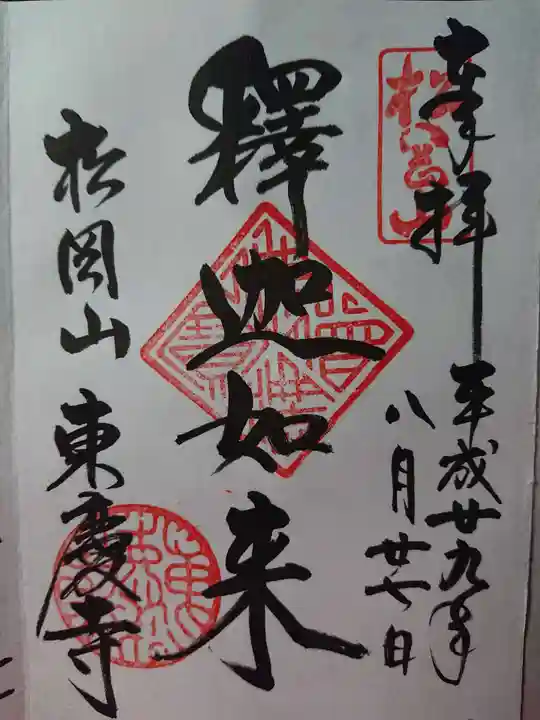 奉拝
平成廿九年
八月廿七日
松岡山
釋迦如来
松岡山 東慶寺